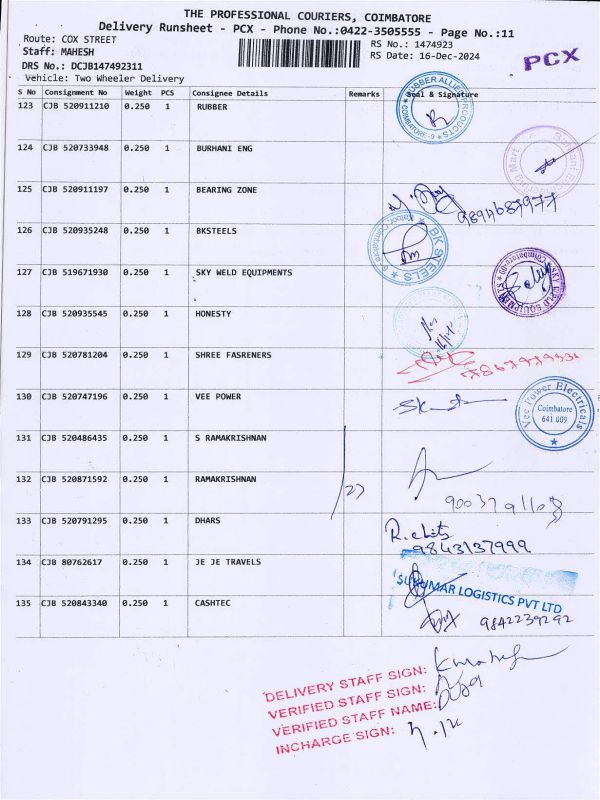 THE PROFESSIONAL COURIERS, COIMBATORE
Delivery Runsheet - PCX - Phone No.:0422-3505555 - Page No.:11
Route: COX STREET
RS No.: 1474923
Staff: MAHESH
RS Date: 16-Dec-2024
PCX
DRS No.: DCJB147492311
Vehicle: Two Wheeler Delivery
S No Consignment No Weight PCS Consignee Details Remarks Seal & Signature
123 CJB 520911210 0.250 1 RUBBER
RUBBER ALLIED PRODUCTS
COIMBATORE-9
124 CJB 520733948 0.250 1 BURHANI ENG
125 CJB 520911197 0.250 1 BEARING ZONE
9894687977
126 CJB 520935248 0.250 1 BKSTEELS
BK STEELS
127 CJB 519671930 0.250 1 SKY WELD EQUIPMENTS
SKY WELD EQUIPMENTS
Coimbatore-9
128 CJB 520935545 0.250 1 HONESTY
129 CJB 520781204 0.250 1 SHREE FASRENERS
130 CJB 520747196 0.250 1 VEE POWER
Vee Power Electricals
Coimbatore
641 009
131 CJB 520486435 0.250 1 S RAMAKRISHNAN
132 CJB 520871592 0.250 1 RAMAKRISHNAN
27
133 CJB 520791295 0.250 1 DHARS
9843137999
134 CJB 80762617 0.250 1 JE JE TRAVELS
SUKUMAR LOGISTICS PVT LTD
135 CJB 520843340 0.250 1 CASHTEC
9842239292
DELIVERY STAFF SIGN:
VERIFIED STAFF SIGN:
VERIFIED STAFF NAME:
INCHARGE SIGN: